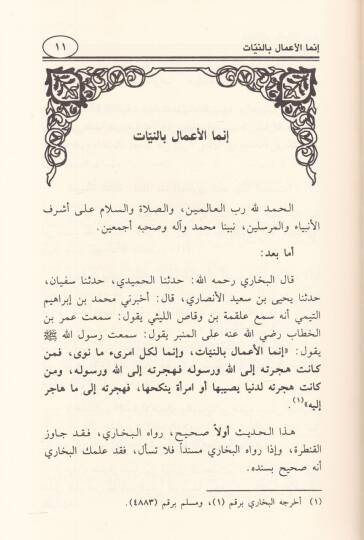 إنما الأعمال بالنيّات
١١
إنما الأعمال بالنيّات
الحمد لله رب العالمين، والصلاة والسلام على أشرف
الأنبياء والمرسلين، نبينا محمد وآله وصحبه أجمعين.
أما بعد:
قال البخاري رحمه الله: حدثنا الحميدي، حدثنا سفيان،
حدثنا يحيى بن سعيد الأنصاري، قال: أخبرني محمد بن إبراهيم
التيمي أنه سمع علقمة بن وقاص الليثي يقول: سمعت عمر بن
الخطاب رضي الله عنه على المنبر يقول: سمعت رسول الله ﷺ
يقول: «إنما الأعمال بالنيّات، وإنما لكل امرىء ما نوى، فمن
كانت هجرته إلى الله ورسوله فهجرته إلى الله ورسوله، ومن
كانت هجرته لدنيا يصيبها أو امرأة ينكحها، فهجرته إلى ما هاجر
إليه»(١).
هذا الحديث أولاً صحيح، رواه البخاري، فقد جاوز
القنطرة، وإذا رواه البخاري مسنداً فلا تسأل، فقد علمك البخاري
أنه صحيح بسنده.
(١) أخرجه البخاري برقم (١)، ومسلم برقم (٤٨٨٣).